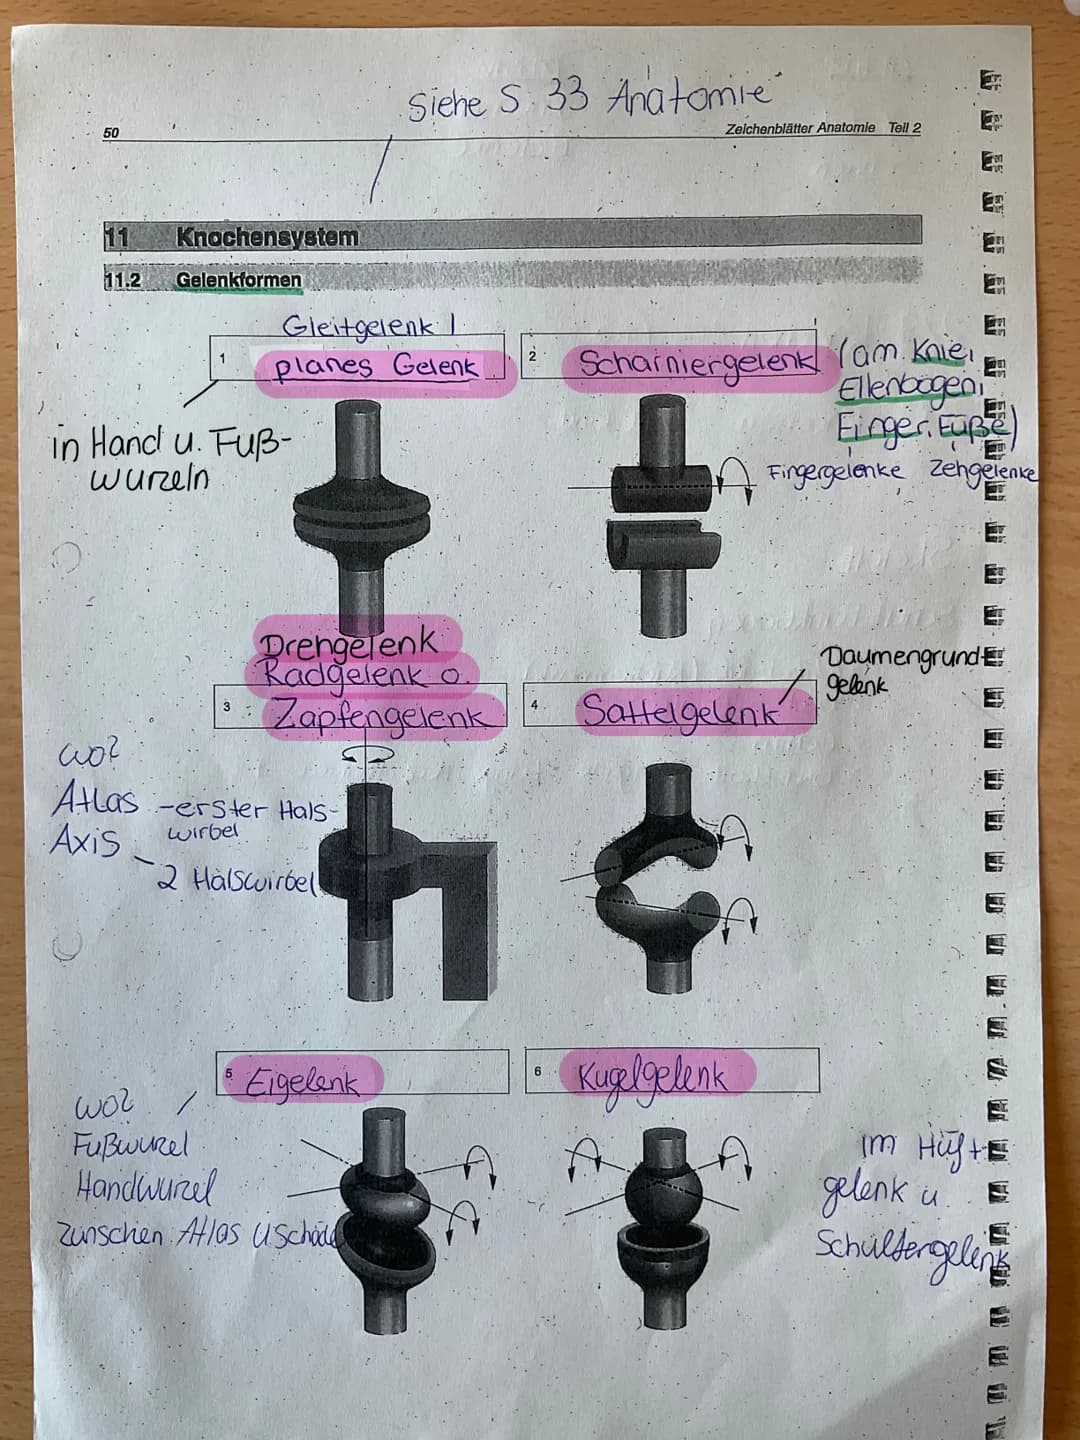 Siehe S. 33 Anatomie
50
Zeichenblätter Anatomie Teil 2
11 Knochensystem
11.2 Gelenkformen
Gleitgelenk /
1 planes Gelenk
in Hand u. Fuß-
wurzeln
2 Schainiergelenk
(am Knie,
Ellenbogen,
Finger, Füße)
Fingergelenke Zehgelenke
Drehgelenk
Radgelenk o.
3 Zapfengelenk
wo?
Atlas - erster Hals-
wirbel
Axis
- 2 Halswirbel
4 Sattelgelenk
Daumengrund-
gelenk
5 Eigelenk
wo?
Fußwurzel
Handwurzel
zwischen Atlas u Schäde
6 Kugelgelenk
im Hüft-
gelenk u.
Schultergelenk